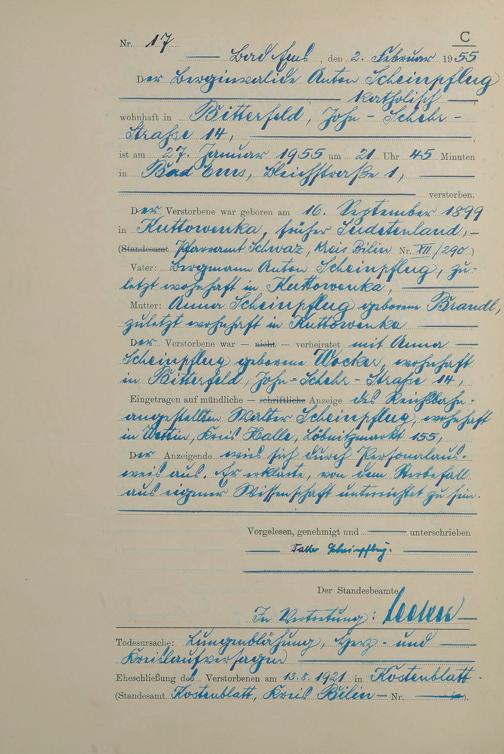 C
Nr. 17
Bad Ems, den 2. Februar 1955
Der Berginvalide Anton Scheinpflug
katholisch
wohnhaft in Bitterfeld, John-Schehr-
Straße 14,
ist am 27. Januar 1955 um 21 Uhr 45 Minuten
in Bad Ems, Bleichstraße 1,
verstorben.
Der Verstorbene war geboren am 16. September 1899
in Kuttowenka, früher Sudetenland,
(Standesamt Pfarramt Schwaz, Kreis Bilin Nr. VII/290)
Vater: Bergmann Anton Scheinpflug, zu-
letzt wohnhaft in Kuttowenka,
Mutter: Anna Scheinpflug geborene Brandl,
zuletzt wohnhaft in Kuttowenka
Der Verstorbene war — nicht — verheiratet mit Anna
Scheinpflug geborene Wocker, wohnhaft
in Bitterfeld, John-Schehr-Straße 14,
Eingetragen auf mündliche — schriftliche Anzeige des Reichsbahn-
angestellten Walter Scheinpflug, wohnhaft
in Wettin, Kreis Halle, Löbnitzmarkt 155,
Der Anzeigende wies sich durch Personalaus-
weis aus. Er erklärte, von dem Sterbefall
aus eigener Wissenschaft unterrichtet zu sein.
Vorgelesen, genehmigt und unterschrieben
Scheinpflug.
Der Standesbeamte
In Vertretung:
Todesursache: Lungenblähung, Herz- und
Kreislaufversagen
Eheschließung des Verstorbenen am 13.8.1921 in Kostenblatt
(Standesamt Kostenblatt, Kreis Bilin — Nr. ).